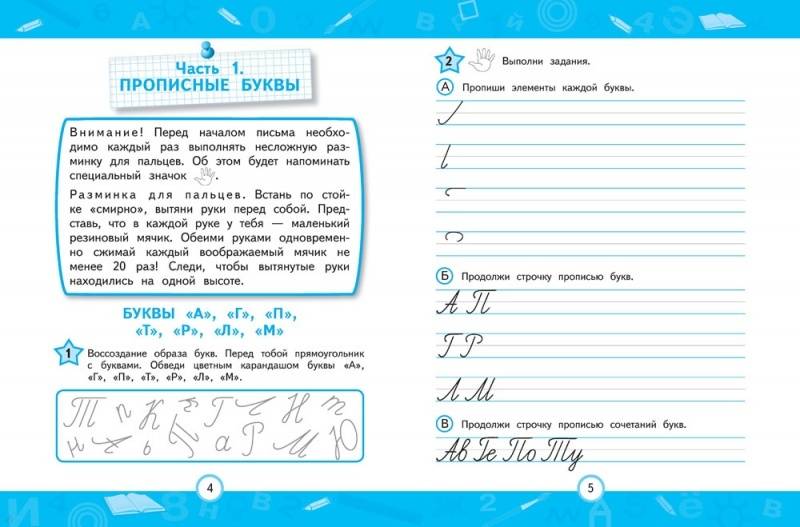 Часть 1.
ПРОПИСНЫЕ БУКВЫ
Внимание! Перед началом письма необхо-
димо каждый раз выполнять несложную раз-
минку для пальцев. Об этом будет напоминать
специальный значок .
Разминка для пальцев. Встань по стой-
ке «смирно», вытяни руки перед собой. Пред-
ставь, что в каждой руке у тебя — маленький
резиновый мячик. Обеими руками одновремен-
но сжимай каждый воображаемый мячик не
менее 20 раз! Следи, чтобы вытянутые руки
находились на одной высоте.
БУКВЫ «А», «Г», «П»,
«Т», «Р», «Л», «М»
1 Воссоздание образа букв. Перед тобой прямоугольник
с буквами. Обведи цветным карандашом буквы «А»,
«Г», «П», «Т», «Р», «Л», «М».
Т п К Г Н
ь а Р М Ю
4
2 Выполни задания.
А Пропиши элементы каждой буквы.
Б Продолжи строчку прописью букв.
А П
Г Р
Л М
В Продолжи строчку прописью сочетаний букв.
Ав Ге По Ту
5